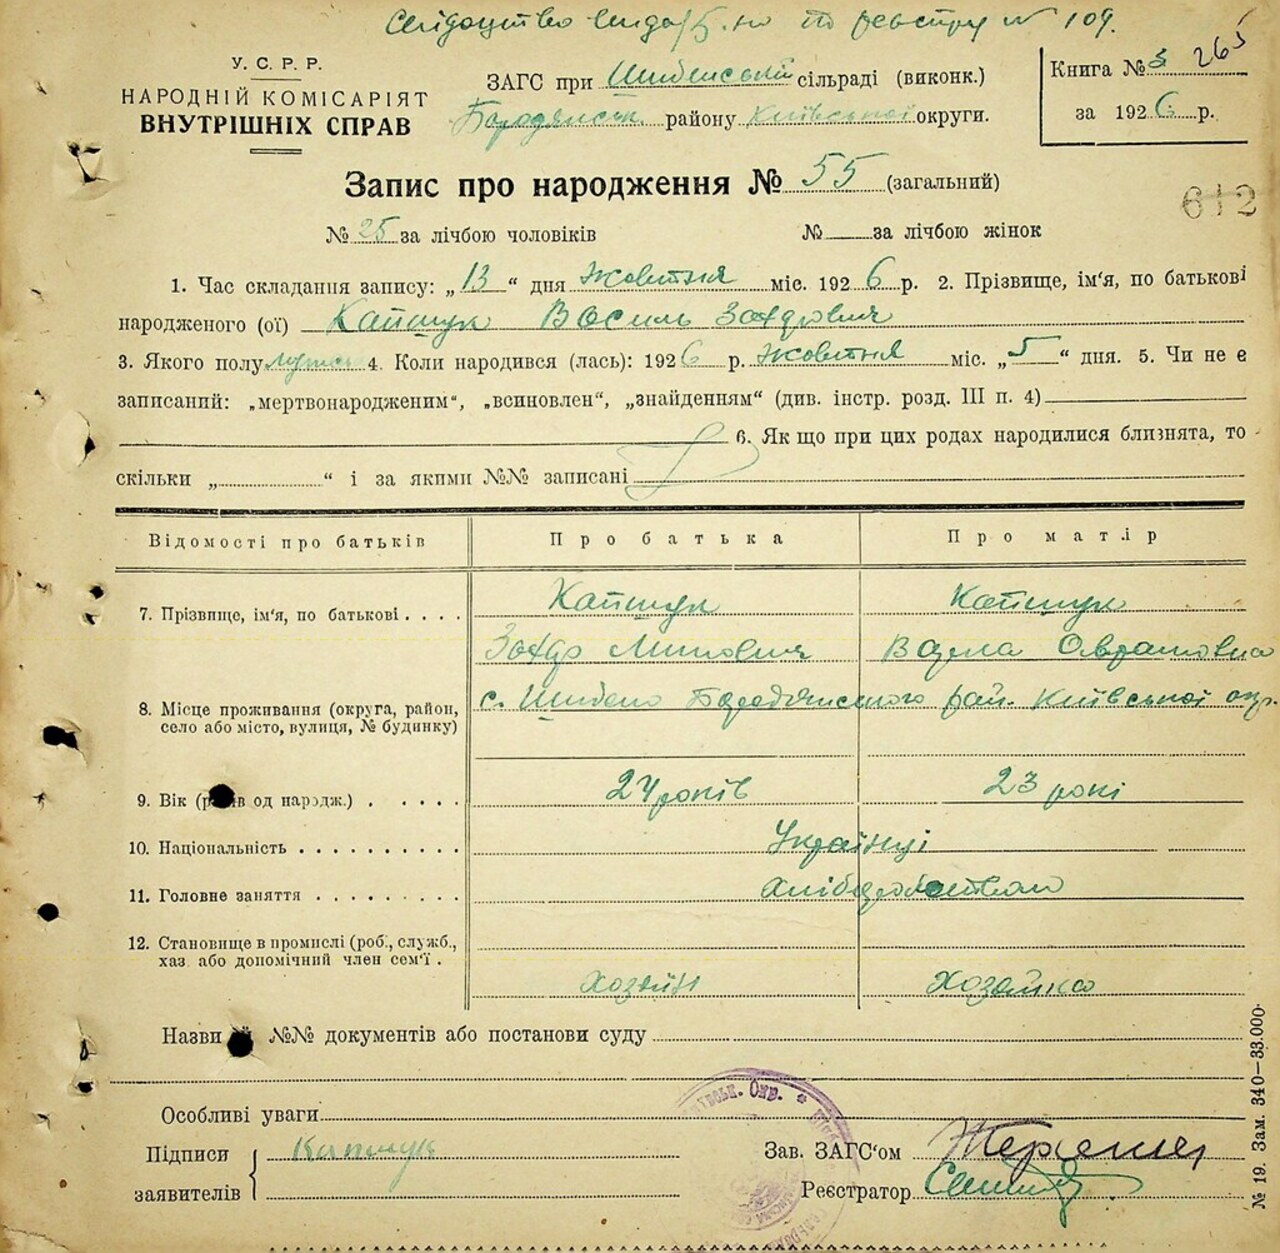 по реєстру № 109.
У. С. Р. Р.
НАРОДНІЙ КОМІСАРІЯТ
ВНУТРІШНІХ СПРАВ
ЗАГС при Шибенській сільраді (виконк.)
Бородянськ. району Київської округи.
Книга № 3 265
за 1926 р.
Запис про народження № 55 (загальний)
612
№ 25 за лічбою чоловіків
№ за лічбою жінок
1. Час складання запису: „13“ дня Жовтня міс. 1926 р. 2. Прізвище, ім‘я, по батькові
народженого (ої) Капшук Василь Захарович
3. Якого полу 4. Коли народився (лась): 1926 р. Жовтня міс. „5“ дня. 5. Чи не є
записаний: „мертвонародженим“, „всиновлен“, „знайденням“ (див. інстр. розд. III п. 4)
6. Як що при цих родах народилися близнята, то
скільки „ “ і за якими №№ записані
Відомості про батьків
Про батька
Про матір
7. Прізвище, ім‘я, по батькові
Капшук
Захар
Капшук
8. Місце проживання (округа, район,
село або місто, вулиця, № будинку)
с. Шибено Бородянського рай. Київської окр.
9. Вік (років од народж.)
24 років
23 рокі
10. Національність
Українці
11. Головне заняття
Хліборобство
12. Становище в промислі (роб., служб.,
хаз. або допомічний член сем‘ї
Хозяїн
Хозайка
Назви й №№ документів або постанови суду
Особливі уваги
Підписи
заявителів
Капшук
Зав. ЗАГС‘ом
Реєстратор
№ 19. Зам. 340—33.000